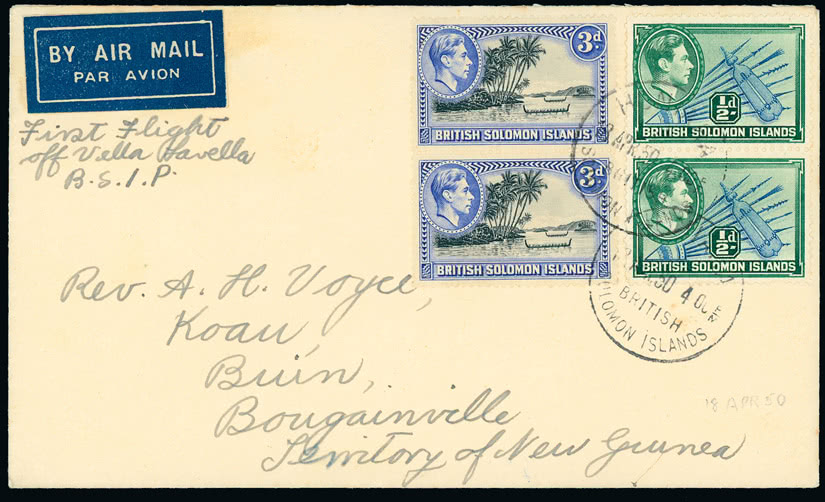 BY AIR MAIL
PAR AVION
First Flight
off Vella Lavella
B.S.I.P.
3d.
BRITISH SOLOMON ISLANDS
½d
BRITISH SOLOMON ISLANDS
3d.
BRITISH SOLOMON ISLANDS
½d
BRITISH SOLOMON ISLANDS
APR.50
50 4 00
BRITISH
SOLOMON ISLANDS
Rev. A. H. Voyce,
Koau,
Buin,
Bougainville
Territory of New Guinea
18 APR 50